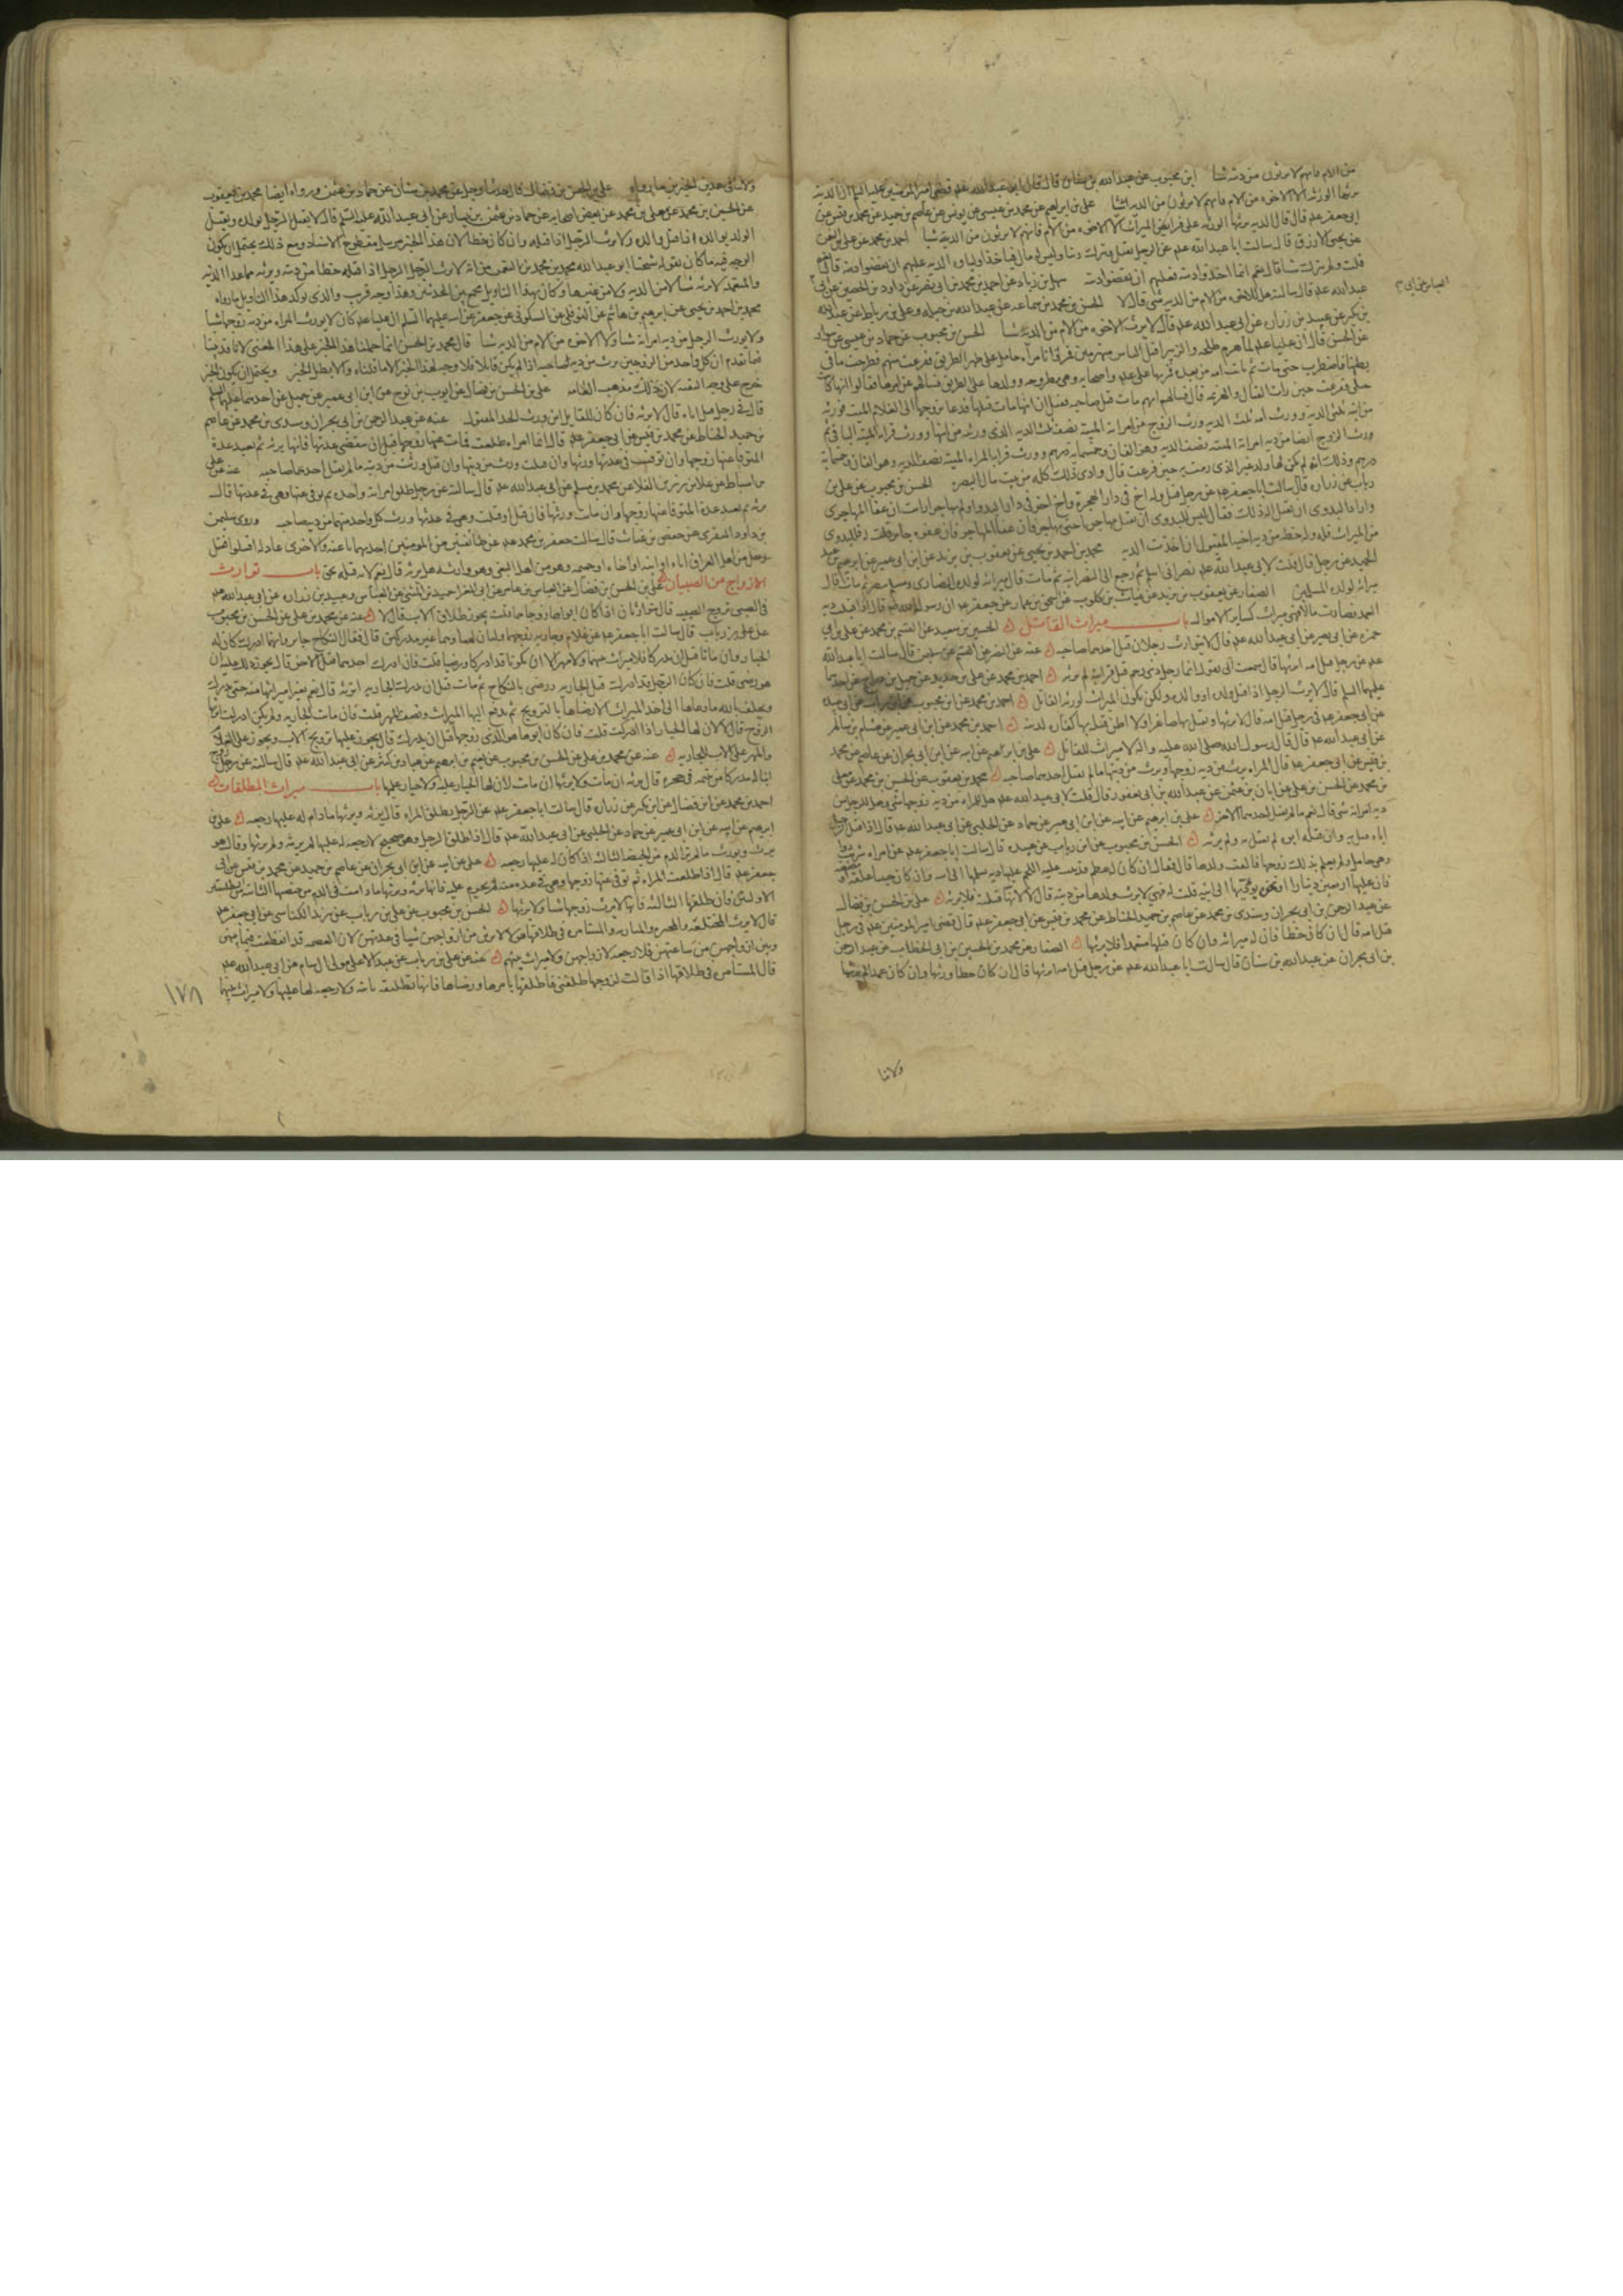 من الام فانهم لا يرثون من ديته شيئا ابن محبوب عن عبد الله بن سنان قال قال ابو عبد الله علیه قضى امير المؤمنين عليه السلم ان الدية
يرثها الورثه الا الاخوه من الام فانهم لا يرثون من الديه شيئا علي بن ابراهيم عن محمد بن عيسى عن يونس عن عاصم بن حميد عن محمد بن قيس عن
ابي جعفر علیه قال قال الديه يرثها الورثه على فرايض الميراث الا الاخوه من الام فانهم لا يرثون من الديه شيئا احمد بن محمد عن علي بن
عن يحيى الازرق قال سالت ابا عبد الله علیه عن الرجل يقتل ويترك دينا وليس له مال فياخذ اولياوه الديه عليهم ان يقضوا دينه قال نعم
قلت ولم يترك شيئا قال نعم انما اخذوا ديته فعليهم ان يقضوا دينه سهل بن زياد عن احمد بن محمد بن ابي نصر عن داود بن الحصين عن ابي
عبد الله علیه قال سالته هل للاخوه من الام من الديه شي قال لا الحسن بن محمد بن سماعه عن عبد الله بن جبله وعلي بن رباط عن عبد الله
بن بكير عن عبيد بن زراره عن ابي عبد الله علیه قال لا يرث الاخوه من الام من الديه شيئا الحسن بن محبوب عن حماد بن عيسى عن سوار
عن الحسن قال ان عليا علیه لما هزم طلحه والزبير اقبل الناس منهزمين فمروا بامراه حامل على ظهر الطريق ففزعت منهم فطرحت ما في
بطنها فاضطرب حتى مات ثم ماتت امه من بعده فمر بها علي علیه واصحابه وهي مطروحه وولدها على الطريق فسالهم عن امرها فقالوا انها كانت
حبلى ففزعت حين رات القتال والهزيمه قال فسالهم ايهم مات قبل صاحبه فقيل ان ابنها مات قبلها فدعا بزوجها ابي الغلام الميت فورثه
من ابنه ثلثي الديه وورث امه ثلث الديه ثم ورث الزوج من امراته الميته نصف ثلث الديه الذي ورثته من ابنها وورث قرابه الميته الباقي ثم
ورث الزوج ايضا من ديه امراته الميته نصف الديه وهو الفان وخمسمائه درهم وورث قرابه المراه الميته نصف الديه وهو الفان وخمسمائه
درهم وذلك انه لم يكن لها ولد غير الذي رمت به حين فزعت قال وادى ذلك كله من بيت مال البصره الحسن بن محبوب عن علي بن
رئاب عن زراره قال سالت ابا جعفر علیه عن رجل قتل وله اخ في دار الهجره واخ اخر في دار البدو ولم يهاجر ارايت ان عفا المهاجري
واراد البدوي ان يقتل اله ذلك فقال ليس للبدوي ان يقتل مهاجريا حتى يهاجر فان عفا المهاجر فان عفوه جايز قلت له فللبدوي
من الميراث قال وله حظه من ديه اخيه المقتول ان اخذت الديه محمد بن احمد بن يحيى عن يعقوب بن يزيد عن ابن ابي عمير عن ابراهيم بن عبد
الحميد عن رجل قال قلت لابي عبد الله علیه نصراني اسلم ثم رجع الى النصرانيه ثم مات قال ميراثه لولده النصارى ومسلم تنصر ثم مات قال
ميراثه لولده المسلمين الصفار عن يعقوب بن يزيد عن غياث بن كلوب عن اسحق بن عمار عن جعفر علیه ان رسول الله قال اذا قبلت ديه
العمد فصارت مالا فهي ميراث كساير الاموال باب ميراث القاتل الحسين بن سعيد عن القسم بن محمد عن علي بن ابي
حمزه عن ابي بصير عن ابي عبد الله علیه قال لا يتوارث رجلان قتل احدهما صاحبه عنه عن النضر عن القسم عن سليمن قال سالت ابا عبد الله
علیه عن رجل قتل امه ايرثها قال سمعت ابي يقول ايما رجل ذي رحم قتل قرابته لم يرثه احمد بن محمد عن علي بن حديد عن جميل بن دراج عن احدهما
عليهما السلم قال لا يرث الرجل اذا قتل ولده او والده ولكن يكون الميراث لورثه القاتل احمد بن محمد عن ابن محبوب
عن ابي جعفر علیه في رجل قتل امه قال لا يرثها ويقتل بها صاغرا ولا اظن قتله بها كفاره لذنبه احمد بن محمد عن ابن ابي عمير عن هشام بن سالم
عن ابي عبد الله علیه قال قال رسول الله صلى الله عليه واله لا ميراث للقاتل علي بن ابراهيم عن ابيه عن ابن ابي نجران عن عاصم عن محمد
بن قيس عن ابي جعفر علیه قال المراه ترث من ديه زوجها ويرث من ديتها ما لم يقتل احدهما صاحبه محمد بن يعقوب عن الحسين بن محمد عن معلى
بن محمد عن الحسن بن علي عن ابان بن عثمن عن عبد الله بن ابي يعفور قال قلت لابي عبد الله علیه هل للمراه من ديه زوجها شي وهل للرجل من
ديه امراته شي قال نعم ما لم يقتل احدهما الاخر علي بن ابراهيم عن ابيه عن ابن ابي عمير عن حماد عن الحلبي عن ابي عبد الله علیه قال اذا قتل الرجل
اباه قتل به وان قتله ابوه لم يقتل به ولم يرثه الحسن بن محبوب عن ابن رئاب عن عبيده قال سالت ابا جعفر علیه عن امراه شربت دوا
وهي حامل ولم يعلم بذلك زوجها فالقت ولدها قال فقال ان كان له عظم قد نبت عليه اللحم عليها ديه تسلمها الى ابيه وان كان حينا علقه او مضغه
فان عليها اربعين دينارا او غره تؤديها الى ابيه قلت له فهي لا ترث ولدها من ديته قال لا لانها قتلته فلا ترثه علي بن الحسن بن فضال
عن عبد الرحمن بن ابي نجران وسندي بن محمد عن عاصم بن حميد الحناط عن محمد بن قيس عن ابي جعفر علیه قال قضى امير المؤمنين علیه في رجل
قتل امه قال ان كان خطا فان له ميراثه وان كان قتلها متعمدا فلا يرثها الصفار عن محمد بن الحسين بن ابي الخطاب عن عبد الرحمن
بن ابي نجران عن عبد الله بن سنان قال سالت ابا عبد الله علیه عن رجل قتل امه ايرثها قال ان كان خطا ورثها وان كان عمدا لم يرثها
ولا ينا
ولا ينافي هذين الخبرين ما رواه علي بن الحسن بن فضال قال حدثنا رجل عن محمد بن سنان عن حماد بن عثمن ورواه ايضا محمد بن يعقوب
عن الحسين بن محمد عن معلى بن محمد عن بعض اصحابه عن حماد بن عثمن بن يسار عن ابي عبد الله عليه السلم قال لا يقتل الرجل بولده ويقتل
الولد بوالده اذا قتل والده ولا يرث الرجل اذا قتله وان كان خطا لان هذا الخبر مرسل مقطوع الاسناد ومع ذلك يحتمل ان يكون
الوجه فيه ما كان يقوله شيخنا ابو عبد الله محمد بن محمد بن النعمن من انه لا يرث الرجل الرجل اذا قتله خطا من ديته ويرثه مما عدا الديه
والمتعمد لا يرثه شيئا لا من الديه ولا من غيرها وكان بهذا التاويل يجمع بين الحديثين وهذا وجه قريب والذي يؤكد هذا التاويل ما رواه
محمد بن احمد بن يحيى عن ابرهيم بن هاشم عن النوفلي عن السكوني عن جعفر عن ابيه عليهما السلم ان عليا علیه كان لا يورث المراه من ديه زوجها شيئا
ولا يورث الرجل من ديه امراته شيئا ولا الاخوه من الام من الديه شيئا قال محمد بن الحسن انما حملنا هذا الخبر على هذا المعنى لانا قد بينا
فيما تقدم ان كل واحد من الزوجين يرث من ديه صاحبه اذا لم يكن قاتلا فلا وجه لهذا الخبر الا ما قلناه والا بطل الخبر ويحتمل ان يكون الخبر
خرج على وجه التقيه لان ذلك مذهب العامه علي بن الحسن بن فضال عن ايوب بن نوح عن ابن ابي عمير عن جميل عن احدهما عليهما السلم
قال في رجل قتل اباه قال لا يرثه فان كان للقاتل ابن ورث الجد المقتول عنه عن عبد الرحمن بن ابي نجران وسندي بن محمد عن عاصم
بن حميد الحناط عن محمد بن قيس عن ابي جعفر علیه قال ايما امراه طلقت فمات عنها زوجها قبل ان تنقضي عدتها فانها ترثه ثم تعتد عده
المتوفا عنها زوجها وان توفيت في عدتها ورثها وان قتلت ورث من ديتها وان قتل ورثت من ديته ما لم يقتل احدهما صاحبه عنه عن علي
بن اسباط عن علا بن رزين القلا عن محمد بن مسلم عن ابي عبد الله علیه قال سالته عن رجل طلق امراته واحده ثم توفي عنها وهي في عدتها قال
ترثه ثم تعتد عدة المتوفا عنها زوجها وان ماتت ورثها فان قتل او قتلت وهي في عدتها ورث كل واحد منهما من ديه صاحبه وروى سليمن
بن داود المنقري عن حفص بن غياث قال سالت جعفر بن محمد علیه عن طائفتين من المؤمنين احديهما باغيه والاخرى عادله اقتتلوا فقتل
رجل من اهل العراق اباه او ابنه او اخاه او حميمه وهو من اهل البغي وهو وارثه هل يرثه قال نعم لانه قتله بحق باب توارث
الازواج من الصبيان علي بن الحسن بن فضال عن العباس بن عامر عن ابي المغرا حميد بن المثنى عن العباس وعبيد بن زراره عن ابي عبد الله علیه
في الصبي تزوج الصبيه قال يتوارثان اذا كان ابواهما زوجاهما قلت يجوز طلاق الاب قال لا عنه عن محمد بن علي عن الحسن بن محبوب
عن علي بن رئاب قال سالت ابا جعفر علیه عن غلام وجاريه زوجهما وليان لهما وهما غير مدركين قال فقال النكاح جايز وايهما ادرك كان له
الخيار وان ماتا قبل ان يدركا فلا ميراث بينهما ولا مهر الا ان يكونا قد ادركا ورضيا قلت فان ادرك احدهما قبل الاخر قال يجوز ذلك عليه ان
هو رضي قلت فان كان الرجل قد ادرك قبل الجاريه ورضي بالنكاح ثم مات قبل ان تدرك الجاريه اترثه قال نعم يعزل ميراثها منه حتى تدرك
وتحلف بالله ما دعاها الى اخذ الميراث الا رضاها بالتزويج ثم يدفع اليها الميراث ونصف المهر قلت فان ماتت الجاريه ولم يكن ادركت ايرثها
الزوج قال لا لان لها الخيار اذا ادركت قلت فان كان ابوها هو الذي زوجها قبل ان تدرك قال يجوز عليها تزويج الاب ويجوز على الغلام
والمهر على الاب للجاريه عنه عن محمد بن علي عن الحسن بن محبوب عن نعيم بن ابرهيم عن عباد بن كثير عن ابي عبد الله علیه قال سالته عن رجل زوج
ابنا له مدركا من يتيمه في حجره قال ترثه ان مات ولا يرثها ان ماتت لان لها الخيار عليه ولا خيار عليها باب ميراث المطلقات
احمد بن محمد عن ابن فضال عن ابن بكير عن زراره قال سالت ابا جعفر علیه عن الرجل يطلق المراه قال ترثه ويرثها ما دام له عليها رجعه علي بن
ابرهيم عن ابيه عن ابن ابي عمير عن حماد عن الحلبي عن ابي عبد الله علیه قال اذا طلق الرجل وهو صحيح لا رجعه له عليها لم ترثه ولم يرثها وقال هو
يرث ويورث ما لم تر الدم من الحيضه الثالثه اذا كان له عليها رجعه علي عن ابيه عن ابن ابي نجران عن عاصم بن حميد عن محمد بن قيس عن ابي
جعفر علیه قال اذا طلقت المراه ثم توفي عنها زوجها وهي في عده منه لم تحرم عليه فانها ترثه ويرثها ما دامت في الدم من حيضتها الثانيه من التطليقتين
الاولتين فان طلقها الثالثه فانها لا ترث زوجها شيئا ولا يرثها الحسن بن محبوب عن علي بن رئاب عن يزيد الكناسي عن ابي جعفر علیه
قال لا يرث المختلعه والمخيره والمباراه والمستامره في طلاقها هؤلاء لا يرثن من ازواجهن شيئا في عدتهن لان العصمه قد انقطعت فيما بينهن
وبين ازواجهن من ساعتهن فلا رجعه لازواجهن ولا ميراث بينهم عنه عن علي بن رئاب عن عبد الاعلى مولى ال سام عن ابي عبد الله علیه
قال المستامره في طلاقها اذا قالت لزوجها طلقني فطلقها بامرها ورضاها فانها تطليقه باينه ولا رجعه له عليها ولا ميراث بينهما
١٧٨